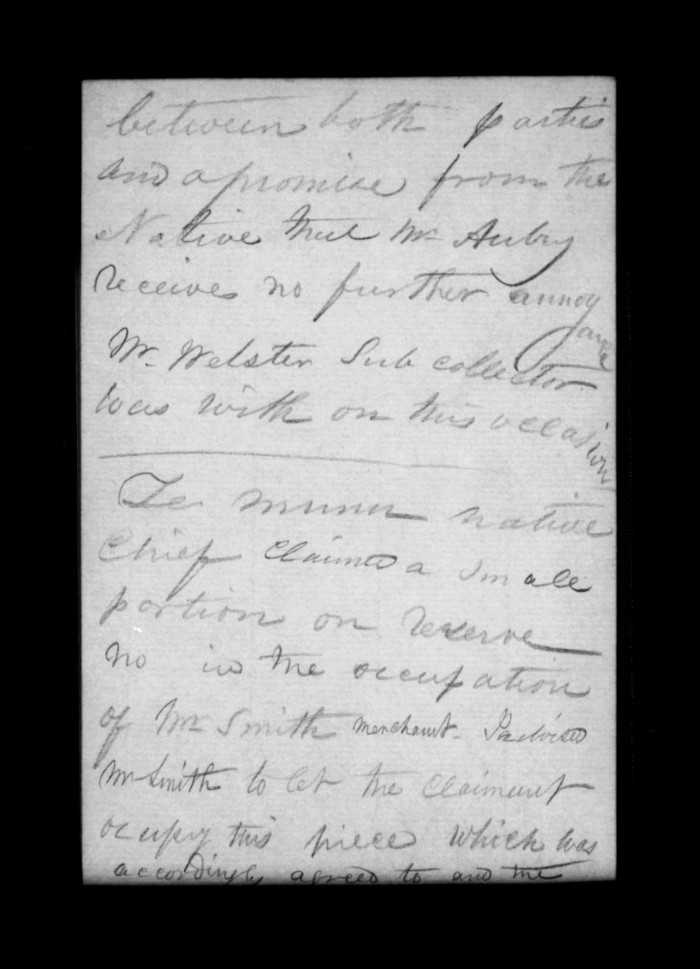 between both parties
and a promise from the
Native that Mr Aubrey
receives no further annoy
ance
Mr. Webster Sub collector
was with on this occasion
Te munu native
Chief Claimed a small
portion on reserve
no in the occupation
of Mr Smith merchant. I advised
Mr Smith to let the claimant
occupy this piece which was
accordingly agreed to and the